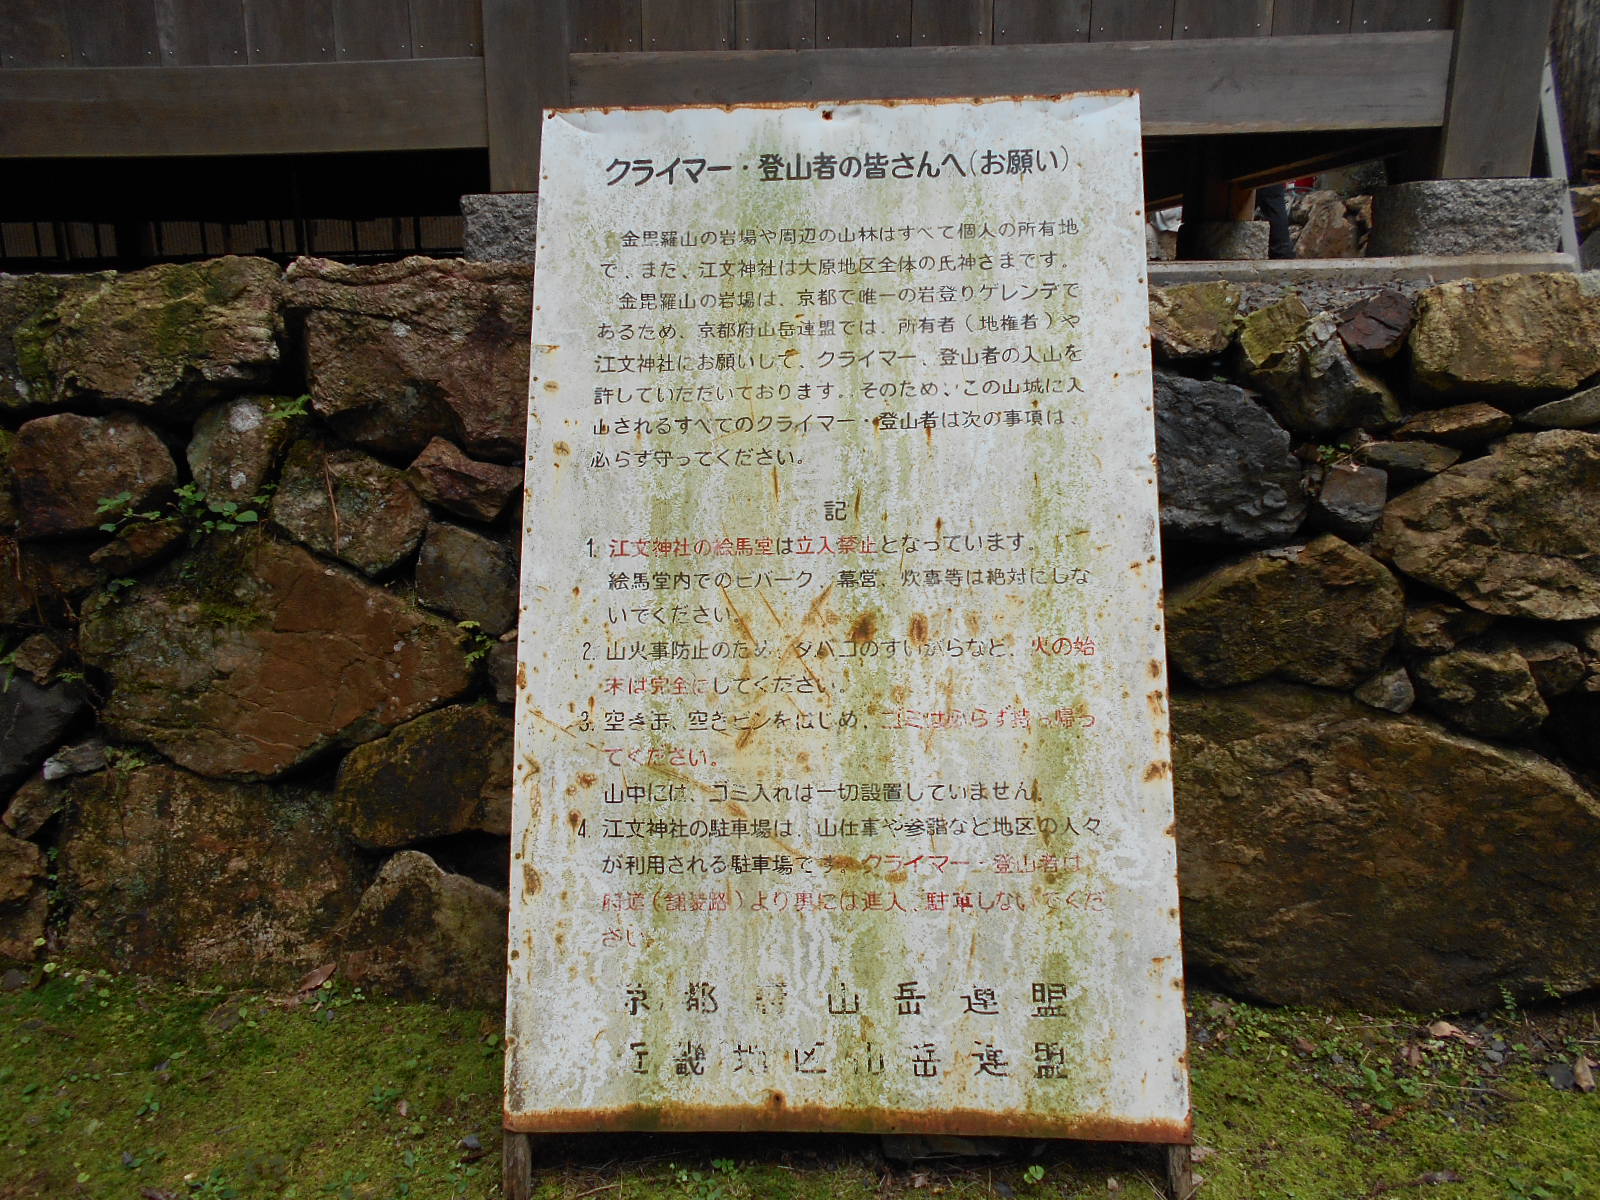 クライマー・登山者の皆さんへ(お願い)
金毘羅山の岩場や周辺の山林はすべて個人の所有地
で、また、江文神社は大原地区全体の氏神さまです。
金毘羅山の岩場は、京都で唯一の岩登りゲレンデで
あるため、京都府山岳連盟では、所有者(地権者)や
江文神社にお願いして、クライマー、登山者の入山を
許していただいております。そのため、この山城に入
山されるすべてのクライマー・登山者は次の事項は、
必らず守ってください。
記
1. 江文神社の絵馬堂は立入禁止となっています。
絵馬堂内でのビバーク、幕営、炊事等は絶対にしな
いでください。
2. 山火事防止のため、タバコのすいがらなど、火の始
末は完全にしてください。
3. 空き缶、空きビンをはじめ、ゴミは必らず持ち帰っ
てください。
山中には、ゴミ入れは一切設置していません。
4. 江文神社の駐車場は、山仕事や参詣など地区の人々
が利用される駐車場です。クライマー・登山者は
府道(舗装路)より奥には進入、駐車しないでくだ
さい。
京都府山岳連盟
近畿地区山岳連盟